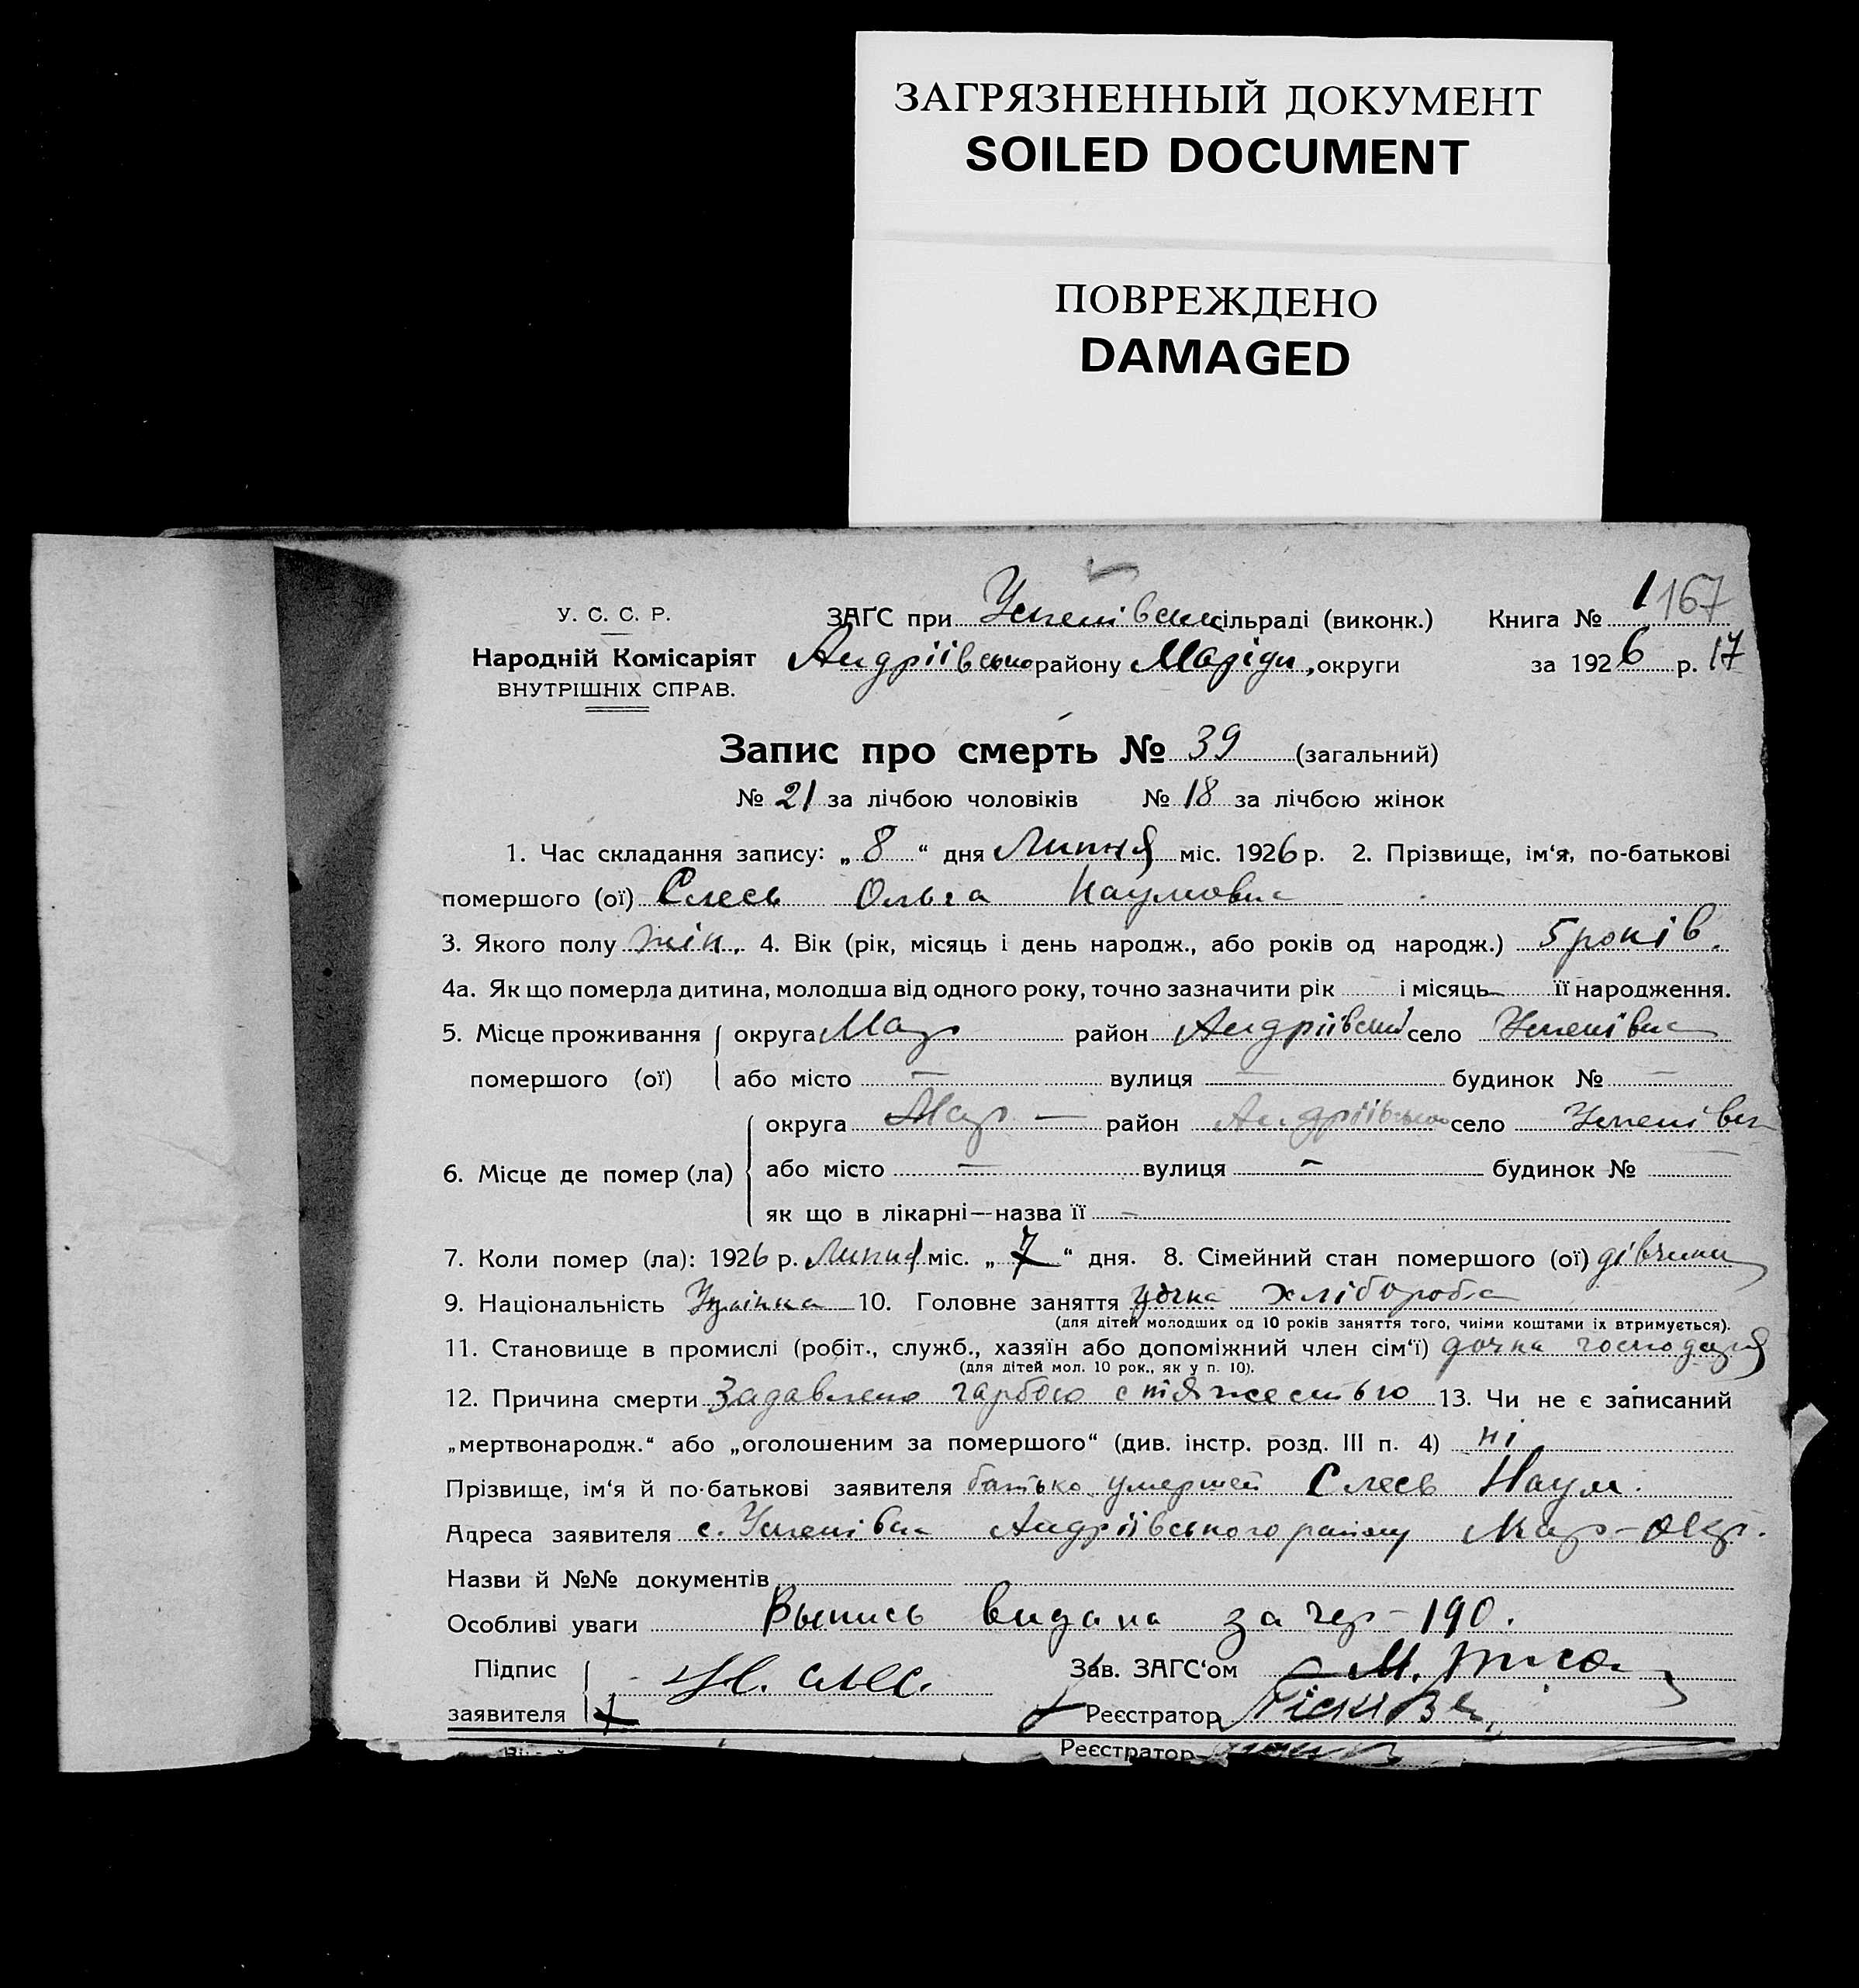 ЗАГРЯЗНЕННЫЙ ДОКУМЕНТ
SOILED DOCUMENT
ПОВРЕЖДЕНО
DAMAGED
У. С. С. Р.
Народній Комісаріят
ВНУТРІШНІХ СПРАВ.
ЗАҐС при Успенівській сільраді (виконк.) Книга № 1 167
Андріївсько району Маріуп, округи за 1926 р. 17
Запис про смерть № 39 (загальний)
№ 21 за лічбою чоловіків № 18 за лічбою жінок
1. Час складання запису: „ 8 “ дня Липня міс. 1926 р. 2. Прізвище, ім‘я, по-батькові
помершого (ої) Слесь Ольга Наумовна
3. Якого полу жін. 4. Вік (рік, місяць і день народж., або років од народж.) 5 років.
4а. Як що померла дитина, молодша від одного року, точно зазначити рік і місяць її народження.
5. Місце проживання округа Мар район Андріївський село Успенівка
помершого (ої) або місто — вулиця — будинок № —
округа Мар — район Андріївсько село Успенівка
6. Місце де помер (ла) або місто — вулиця — будинок №
як що в лікарні—назва її —
7. Коли помер (ла): 1926 р. Липня міс. „ 7 “ дня. 8. Сімейний стан помершого (ої) дівчина
9. Національність Українка 10. Головне заняття дочка хлібороба
(для дітей молодших од 10 років заняття того, чиїми коштами їх втримується).
11. Становище в промислі (робіт., служб., хазяїн або допоміжний член сім‘ї) дочка господаря
(для дітей мол. 10 рок., як у п. 10).
12. Причина смерти Задавлена гарбою с тяжестью 13. Чи не є записаний
„мертвонародж.“ або „оголошеним за помершого“ (див. інстр. розд. III п. 4) ні
Прізвище, ім‘я й по-батькові заявителя батько умершей Слесь Наум.
Адреса заявителя с. Успенівка Андріївського району Мар-окр.
Назви й №№ документів
Особливі уваги Выпись видана за чер-190.
Підпис Н. Слес. Зав. ЗАҐС‘ом М.
заявителя Реєстратор
Реєстратор